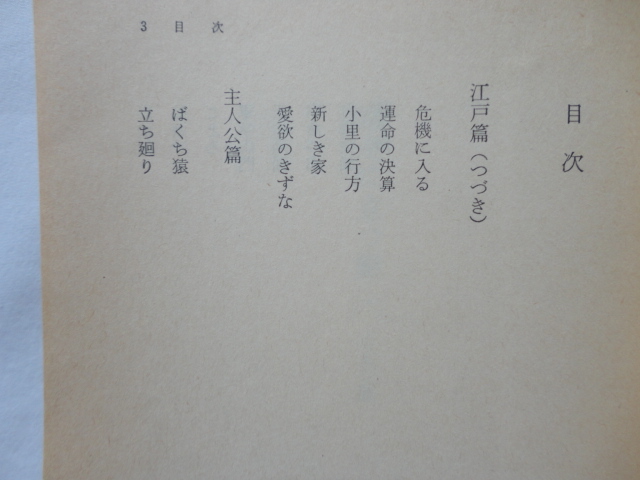 3 目 次
目次
江戸篇（つづき）
危機に入る
運命の決算
小里の行方
新しき家
愛欲のきずな
主人公篇
ばくち猿
立ち廻り